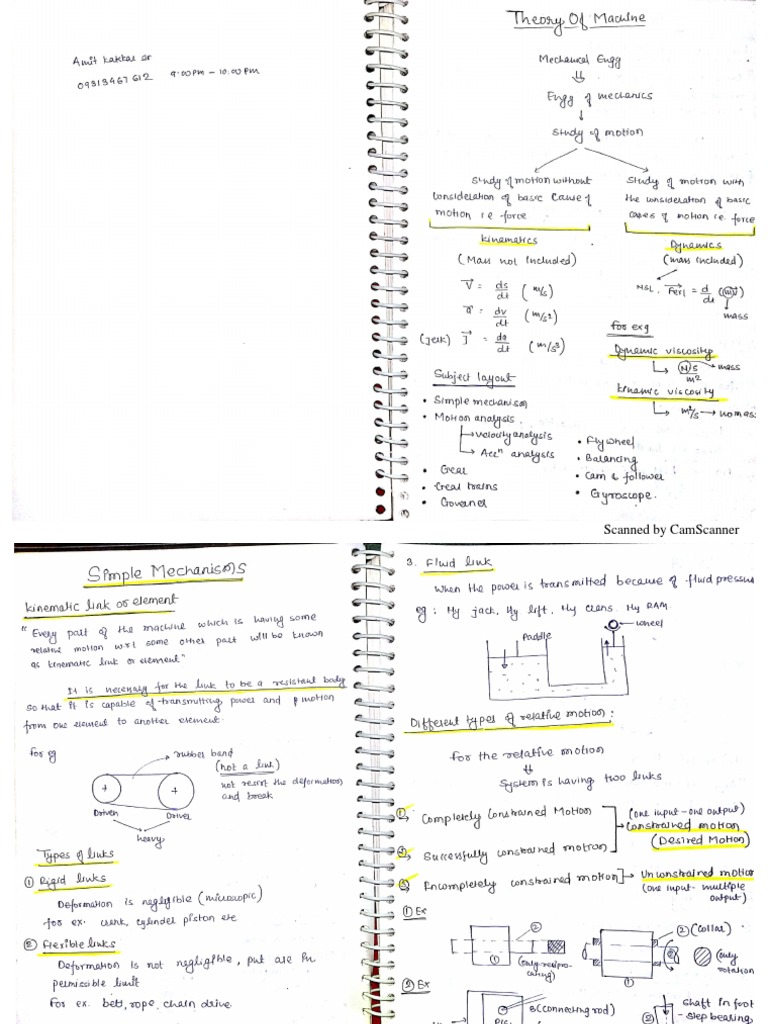 Amit Kakkar sr
09313467612 9:00PM - 10:00PM
Theory Of Machine
Mechanical Engg
Engg of mechanics
Study of motion
Study of motion without
consideration of basic cause of
motion i.e force
Kinematics
(Mass not included)
V = ds/dt (m/s)
a = dv/dt (m/s²)
(jerk) J = da/dt (m/s³)
Study of motion with
the consideration of basic
cases of motion i.e. force
Dynamics
(mass included)
NSL, Fext = d/dt (mV)
mass
for exg
Dynamic viscosity
NS/m² mass
kinamic viscosity
m²/s no mass
Subject layout
• Simple mechanism
• Motion analysis
velocity analysis
Accⁿ analysis
• Gear
• Gear trains
• Governer
• Flywheel
• Balancing
• Cam & follower
• Gyroscope.
Scanned by CamScanner
Simple Mechanisms
kinematic link or element
"Every part of the machine which is having some
relative motion w.r.t some other part will be known
as kinematic link or element"
It is necessary for the link to be a resistant body
so that it is capable of transmitting power and motion
from one element to another element.
for eg
rubber band
(not a link)
not resist the deformation
and break
Driven Driver
heavy
Types of links
① Rigid links
Deformation is negligible (microscopic)
for ex. crank, cylinder piston etc
② Flexible links
Deformation is not negligible, but are in
permissible limit
For ex. belt, rope, chain drive.
3. Fluid link
When the power is transmitted because of fluid pressure
eg: Hy jack, Hy lift, Hy crens, Hy RAM
Paddle wheel
Different types of relative motion:
for the relative motion
System is having two links
① Completely constrained Motion
② Successfully constrained motion
(one input-one output)
Constrained motion
(Desired Motion)
③ Encompletely constrained motion Unconstrained motion
(one input-multiple
output)
① Ex
② ① (only reciprocating)
② (collar)
① (only
rotation
② Ex
B (connecting rod)
shaft in foot
step bearing
②